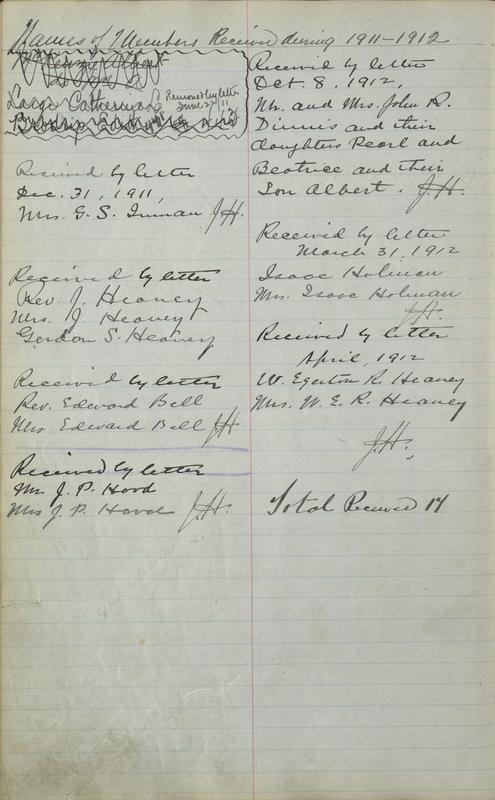 Names of Members Received during 1911-1912
Large Catherine
Removed by letter
June 22/11
Received by letter
Dec. 31, 1911,
Mrs. G. S. Inman J.H.
Received by letter
Rev. J. Heaney
Mrs. J. Heaney
Gordon S. Heaney
Received by letter
Rev. Edward Bell
Mrs Edward Bell J.H.
Received by letter
Mr J. P. Hood
Mrs J. P. Hood J.H.
Received by letter
Oct. 8, 1912,
Mr. and Mrs. John R.
Dinnis and their
daughters Pearl and
Beatrice and their
Son Albert. J.H.
Received by letter
March 31, 1912
Isaac Holman
Mrs. Isaac Holman
J.H.
Received by letter
April, 1912
W. Egerton R. Heaney
Mrs. W. E. R. Heaney
J.H.
Total Received 17